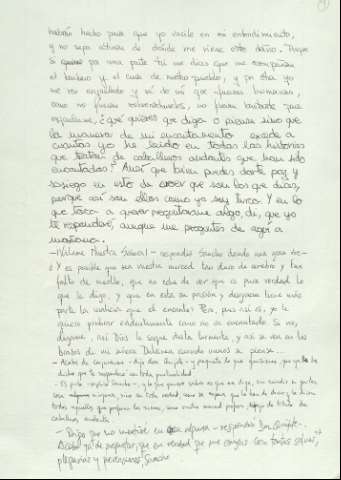 habrán hecho para que yo vacile en mi entendimiento,
y no sepa atinar de donde me viene este daño. Porque
si por una parte tú me dices que me acompañan
el barbero y el cura de nuestro pueblo, y por otra yo
me veo enjaulado y sé de mí que fuerzas humanas,
como no fueran sobrenaturales, no fueran bastante para
enjaularme, ¿qué quieres que diga o piense sino que
la manera de mi encantamento excede a
cuantas yo he leído en todas las historias
que tratan de caballeros andantes que han sido
encantados? Ansí que bien puedes darte paz y
sosiego en esto de creer que son los que dices,
porque así son ellos como yo soy turco. Y en lo
que toca a querer preguntarme algo, di, que yo
te responderé, aunque me preguntes de aquí a
mañana.
- ¡Válame Nuestra Señora! - respondió Sancho dando una gran voz -
¿Y es posible que sea vuestra merced tan duro de celebro y tan
falto de meollo, que no eche de ver que es pura verdad lo
que le digo, y que en esta su prisión y desgracia tiene más
parte la malicia que el encanto? Pero, pues así es, yo le
quiero probar evidentemente como no va encantado. Si no,
dígame, así Dios le saque desta tormenta, y así se vea en los
brazos de mi señora Dulcinea cuando menos se piense...
- Acaba de conjurarme - dijo don Quijote - y pregunta lo que quisieres, que ya te he
dicho que te responderé con toda puntualidad.
- Eso pido - replicó Sancho -, y lo que quiero saber es que me diga, sin añadir ni quitar
cosa ninguna, sino con toda verdad, como se espera que la han de decir y la dicen
todos aquellos que profesan las armas, como vuestra merced las profesa, debajo de título de
caballeros andantes...
- Digo que no mentiré en cosa alguna - respondió Don Quijote -.
Acaba ya de preguntar, que en verdad que me cansas con tantas salvas,
plegarias y prevenciones, Sancho.